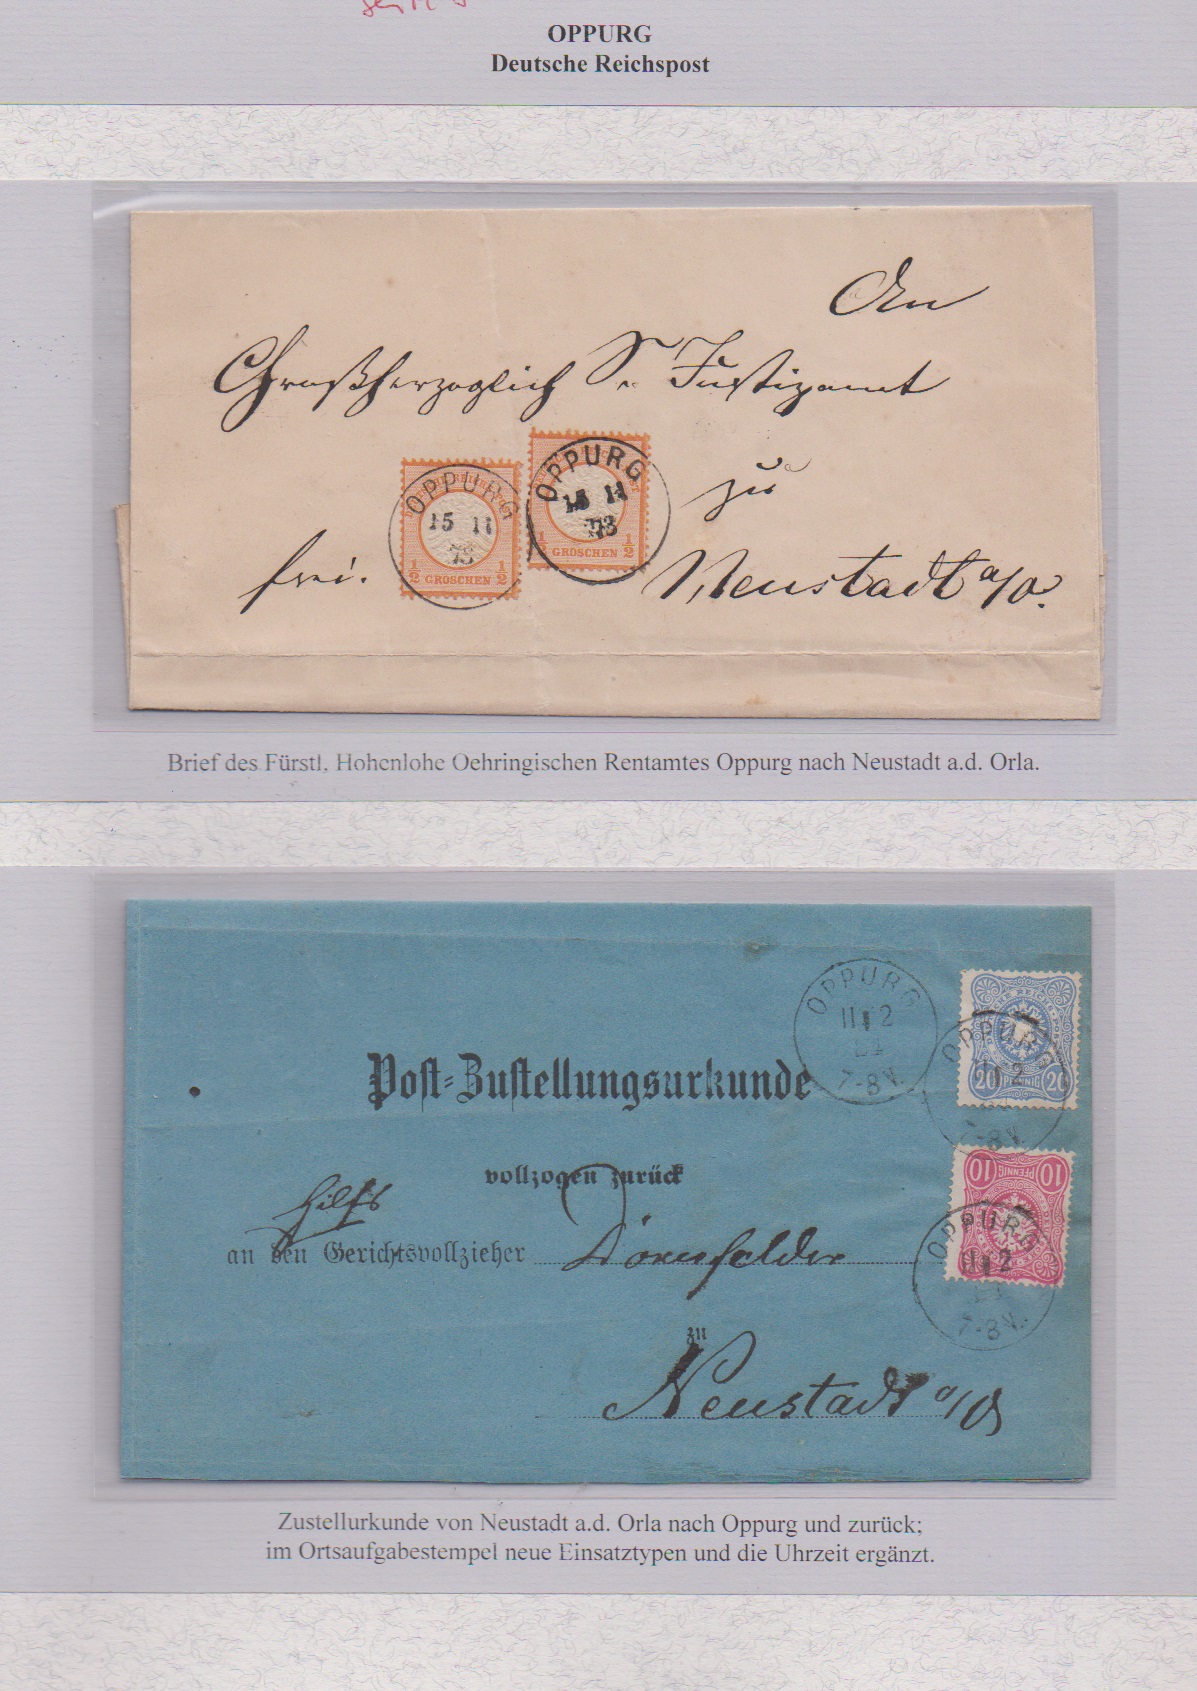 OPPURG
Deutsche Reichspost
An
Großherzoglich S. Justizamt
zu
frei. Neustadt a/O.
OPPURG
15 11
73
½ GROSCHEN ½
OPPURG
15 11
73
½ GROSCHEN ½
Brief des Fürstl. Hohenlohe Oehringischen Rentamtes Oppurg nach Neustadt a.d. Orla.
OPPURG
11 2
7-8 V.
OPPURG
11 2
8 V.
20 PFENNIG 20
Post-Zustellungsurkunde
vollzogen zurück
Hilfs
an den Gerichtsvollzieher Dornfelder
10 PFENNIG 10
OPPURG
11 2
7-8 V.
zu
Neustadt a/O
Zustellurkunde von Neustadt a.d. Orla nach Oppurg und zurück;
im Ortsaufgabestempel neue Einsatztypen und die Uhrzeit ergänzt.